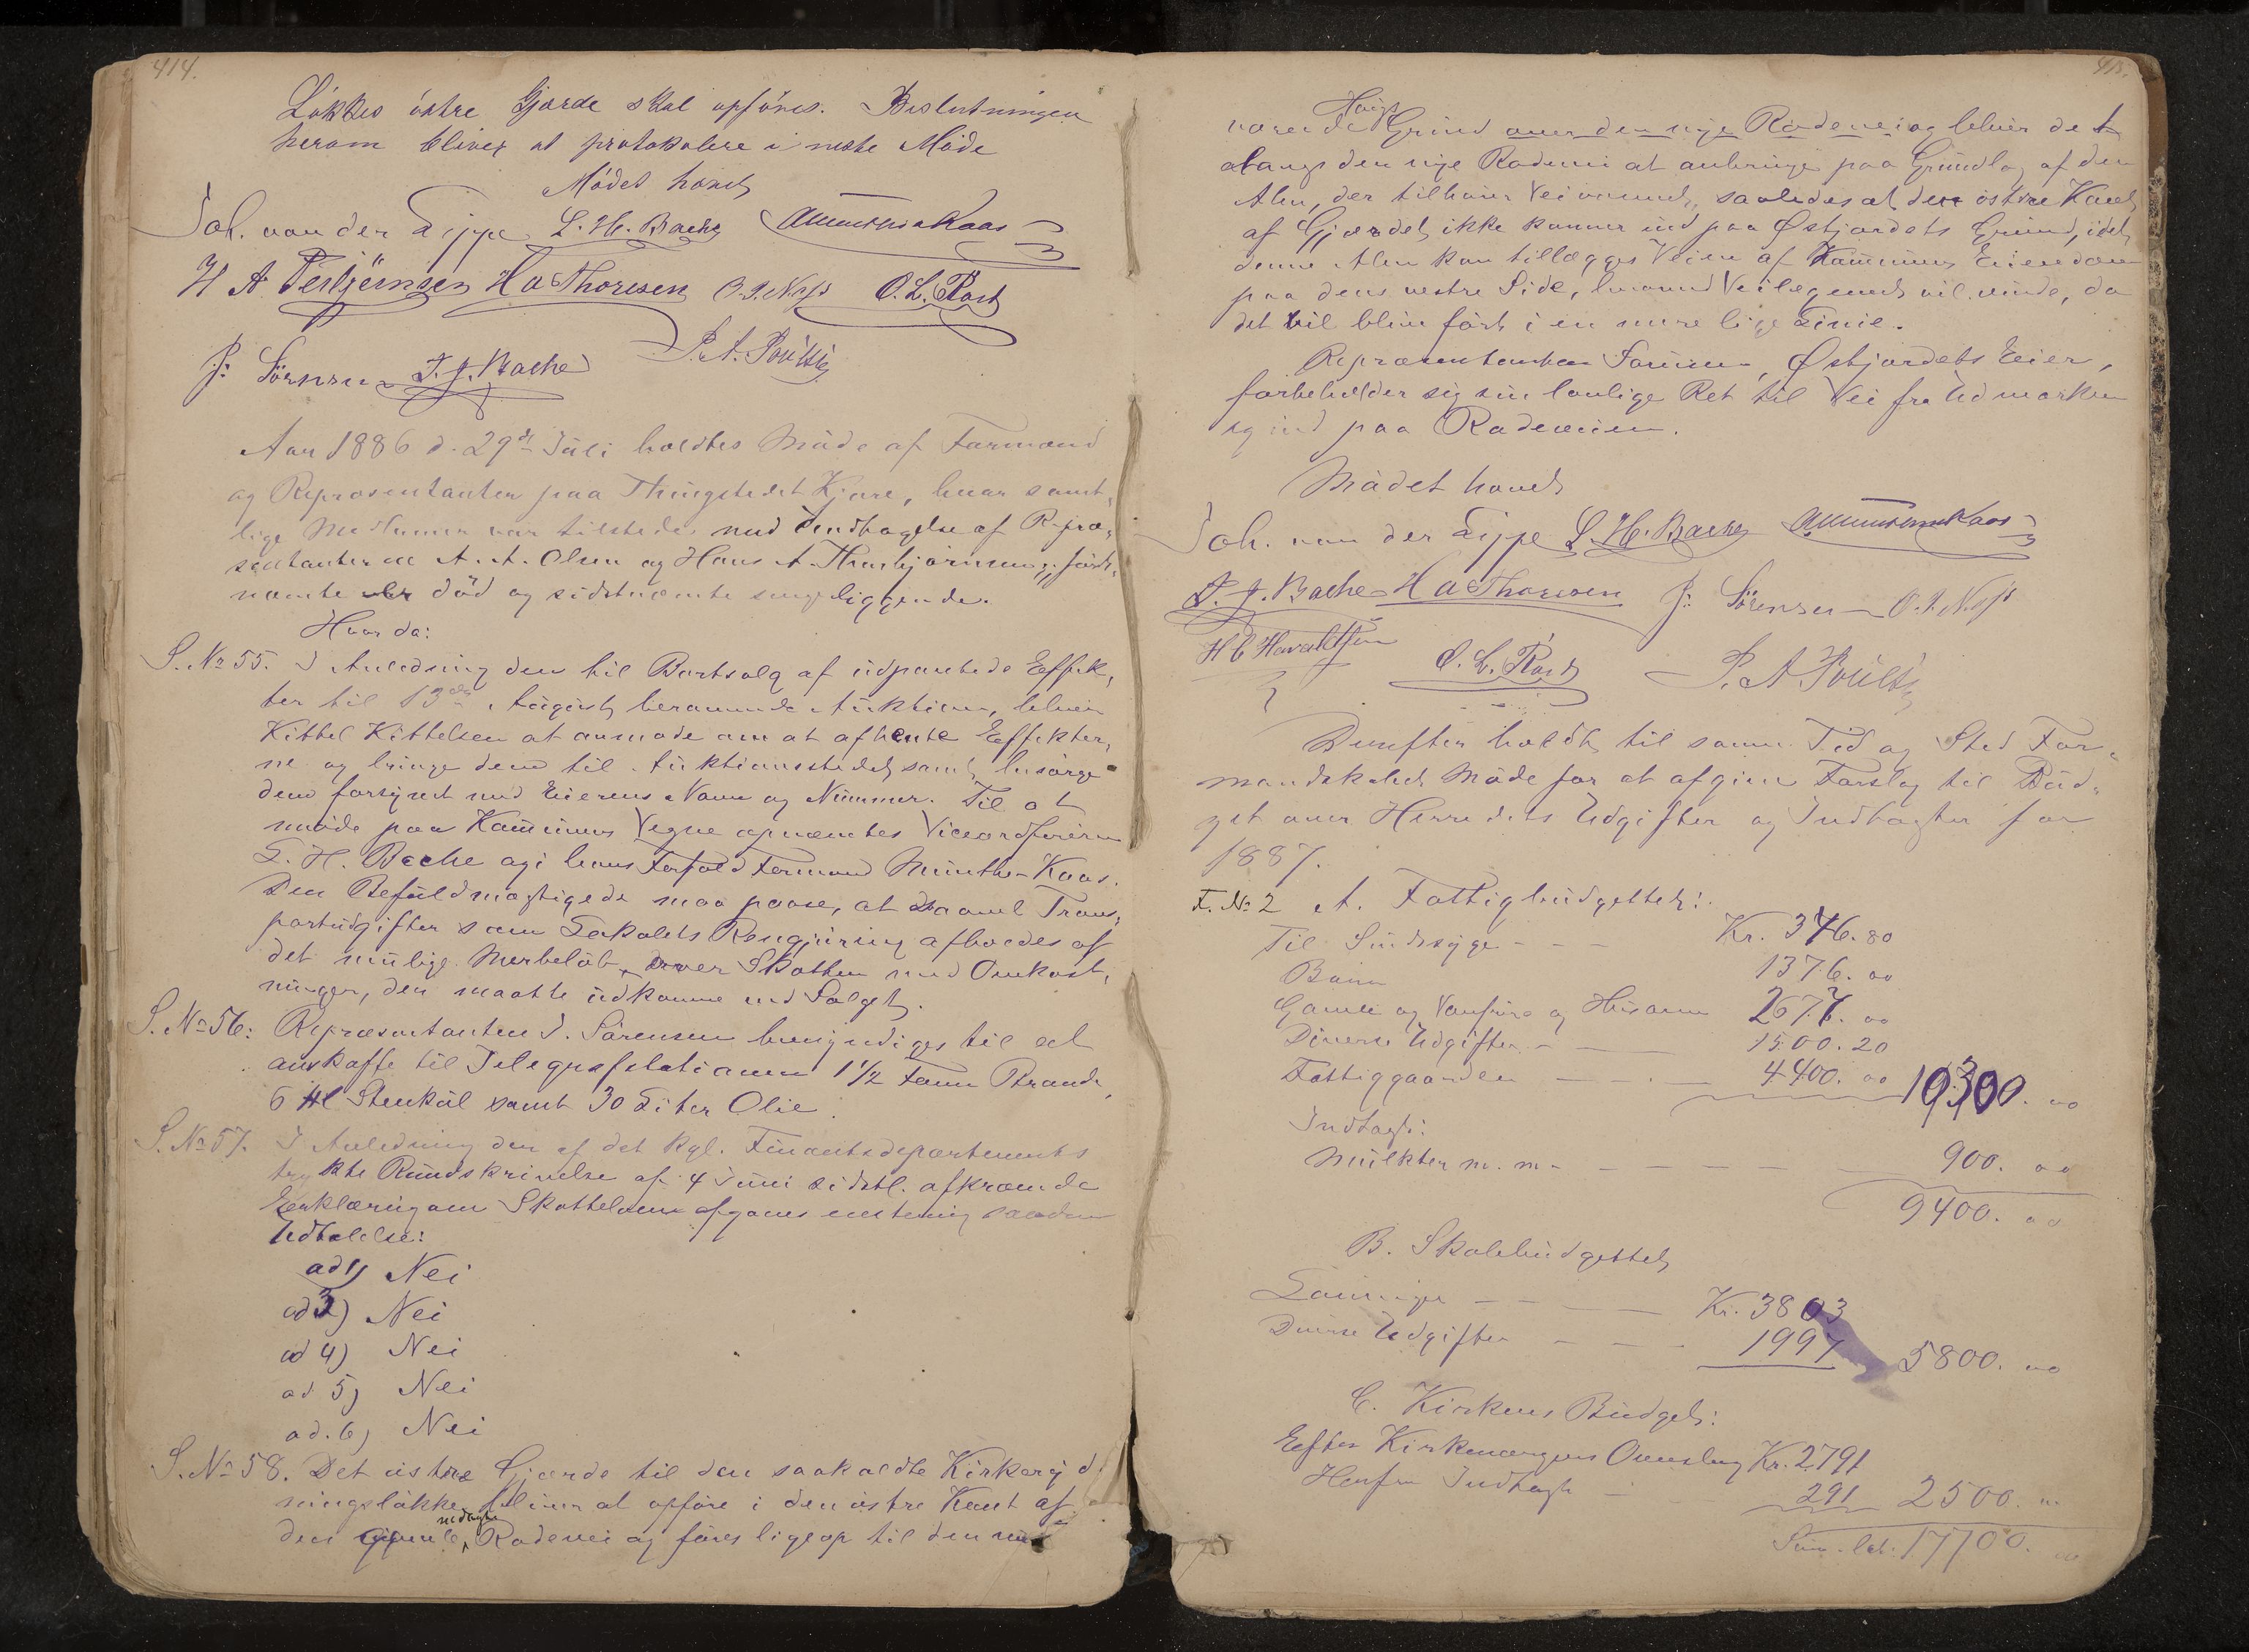 414.
Løkkes østre Gjærde skal opføres. Beslutningen
herom bliver at protokolere i neste Møde
Mødet hævet
Joh. von der Lippe L. H. Bache Munthe Kaas
H A Torbjørnsen H A Thoresen O. L. Røst
J: Sørensen T. J. Bache P. A. Poulsen
Aar 1886 d. 29de Juli holdtes Møde af Formænd
og Repræsentanter paa Thingstedet Kjære, hvor samt-
lige Medlemmer var tilstede med Undtagelse af Repræ-
sentanterne A. A. Olsen og Hans A. Thorbjørnsen, først-
nævnte er død og sidstnævnte sengeliggende.
Hvor da:
S. No 55. I Anledning den til Bortsalg af udpantede Effek-
ter til 13de August berammede Auktion, bliver
Kittel Kittelsen at anmode om at afhente Effekter-
ne og bringe dem til Auktionsstedet samt besørge
dem forsynet med Eierens Navn og Nummer. Til at
møde paa Kommunens Vegne opnævntes Viceordføreren
L. H. Bache og i hans Forfald Formand Munthe-Kaas.
Den Befuldmægtigede maa paase, at saavel Trans-
portudgifter som Lokalets Rengjøring afholdes af
det mulige Merbeløb over Skatten med Omkost-
ninger, der maatte udkomme ved Salget.
S. No 56: Repræsentanten J. Sørensen bemyndiges til at
anskaffe til Telegrafstationen 1 1/2 Favn Brænde,
6 Hl Stenkul samt 30 Liter Olie.
S. No 57. I Anledning den af det kgl. Finantsdepartements
trykte Rundskrivelse af 4 Juni sidstl. afkrævede
Erklæring om Skatteloven afgaves eenstemig saadan
Udtalelse:
ad 1) Nei
ad 3) Nei
ad 4) Nei
ad 5) Nei
ad. 6) Nei
S. No 58. Det østre Gjærde til den saakaldte Kirkeryd-
ningsløkke bliver at opføre i den østre Kant af
nedlagte
den gamle Rodevei og føres ligeop til den nu-
415.
Haigs
værende Grind over den nye Rodevei og bliver det
alangs den nye Rodevei at anbringe paa Grundlag af den
Alen, der tilhører Veivæsenet, saaledes at den østre Kant
af Gjærdet ikke kommer ind paa Østjordets Grund, idet
denne Alen kan tillægges Veien af Kommunens Eiendom
paa dens vestre Side, hvorved Veilegemet vil vinde, da
det vil blive ført i en mere lige Linie.
Repræsentanten Sørensen, Østjordets Eier,
forbeholder sig sin lovlige Ret til Vei fra Udmarken
og ind paa Rodeveien.
Mødet hævet
Joh. von der Lippe L. H. Bache Munthe Kaas
T. J. Bache H A Thoresen J: Sørensen
O. L. Røst P. A. Poulsen
Derefter holdt til samme Tid og Sted For-
mandskabet Møde for at afgive Forslag til Bud-
get over Herredets Udgifter og Indtægter for
1887.
F. No 2 A. Fattigbudgettet:
Til Sindssyge - - - Kr. 346.80
Børn 1376. 00
Gamle og Vanføre og Husarme 2677. 00
Diverse Udgifter - 1500. 20
Fattiggaarden - - - 4400. 00 10300. 00
Indtægt:
Mulkter m. m. - - - - - - 900. 00
9400. 00
B. Skolebudgettet
Lønninger - - - - Kr. 3803
Diverse Udgifter - - - 1997 5800. 00
C. Kirkens Budget:
Efter Kirkeværgens Overslag Kr. 2791
Herfra Indtægt - 291 2500. 00
Sum. lat. 17700. 00